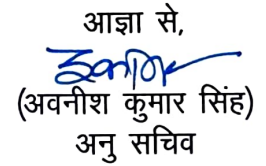 आज्ञा से,
(अवनीश कुमार सिंह)
अनु सचिव